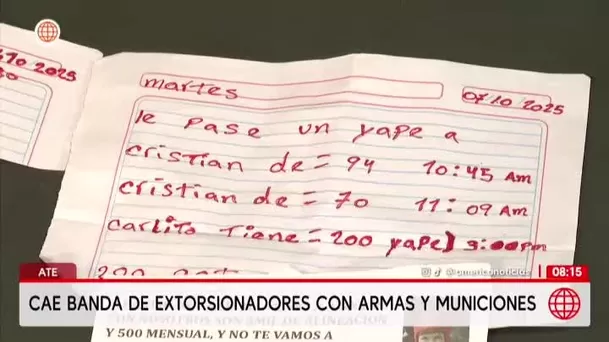 10 2025
martes
07 10 2025
le pase un yape a
cristian de = 94 10:45 Am
cristian de = 70 11:09 Am
carlito tiene = 200 yape) 9:00 pm
200
@americanoticias
ATE
08:15
CAE BANDA DE EXTORSIONADORES CON ARMAS Y MUNICIONES
Y 500 MENSUAL, Y NO TE VAMOS A